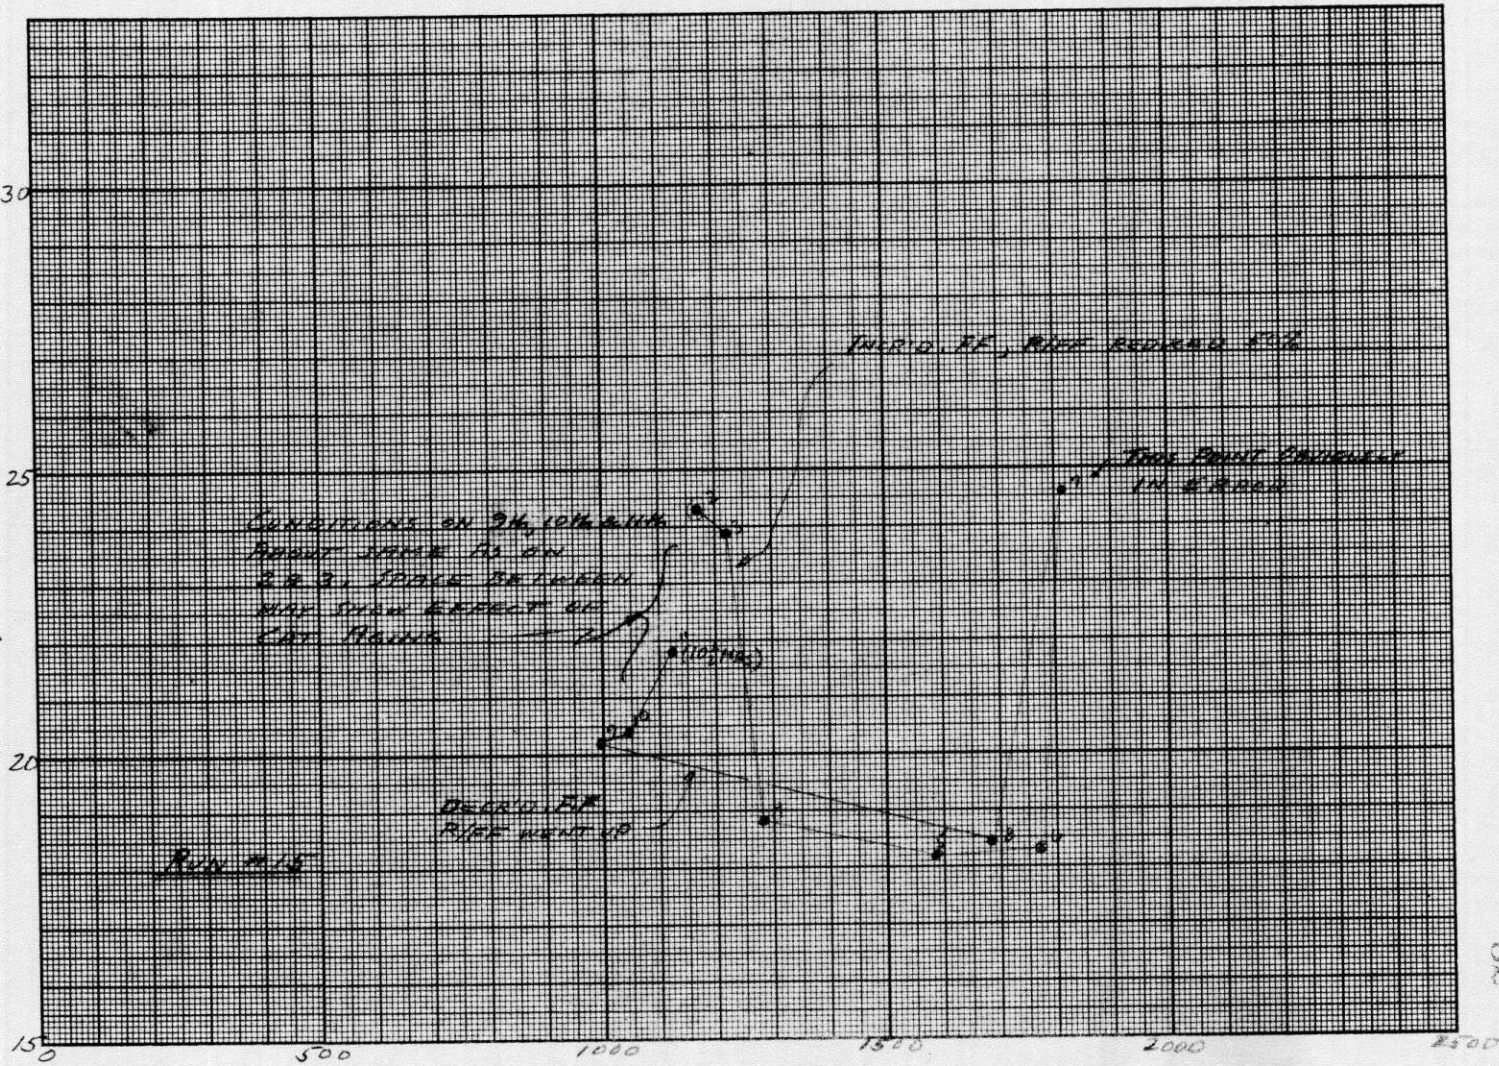 30
INCR'D. FF, R/FF REDUCED 50%
25
THIS POINT OBVIOUSLY
IN ERROR
CONDITIONS ON 9th, 10th & 11th
ABOUT SAME AS ON
2 & 3. SPACE BETWEEN
MAY SHOW EFFECT OF
CAT. AGING
2
3
7
(10½ HRS)
10
9
20
DECR'D. FF
R/FF WENT UP
4
8
RUN #15
15
0
500
1000
1500
2000
2500